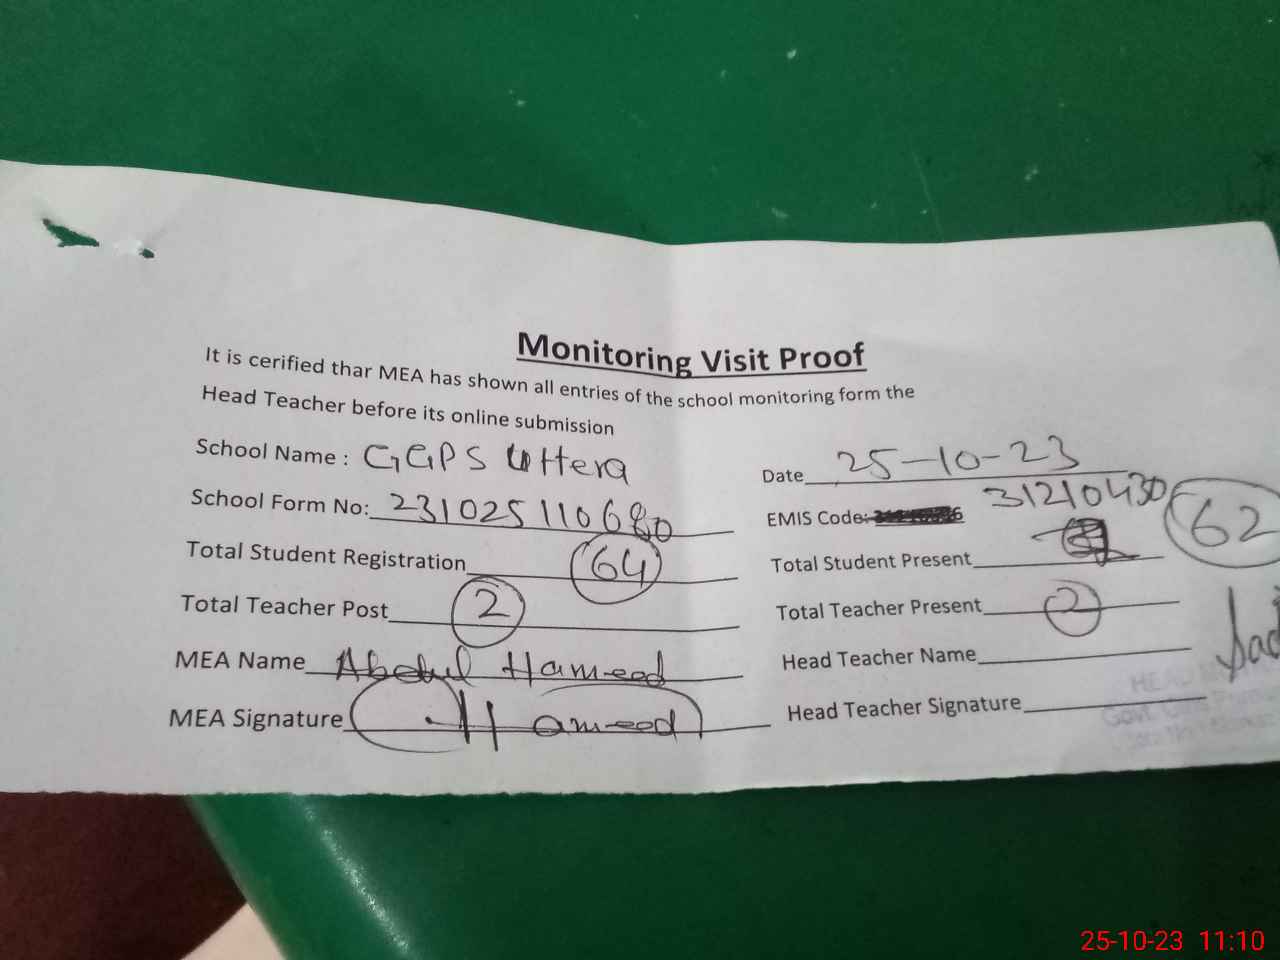 Monitoring Visit Proof
It is cerified thar MEA has shown all entries of the school monitoring form the
Head Teacher before its online submission
School Name : GGPS Uttera
Date 25-10-23
School Form No: 231025110680
EMIS Code: 31210430
Total Student Registration 64
Total Student Present 62
Total Teacher Post 2
Total Teacher Present 2
MEA Name Abdul Hameed
Head Teacher Name
MEA Signature Hameed
Head Teacher Signature
25-10-23 11:10